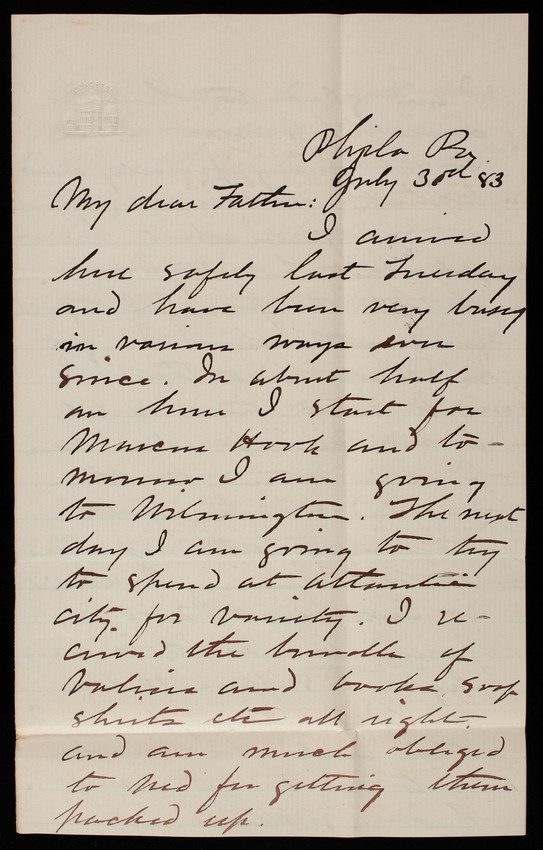 Phila Pa
July 30th 83
My dear Father:
I arrived
here safely last Tuesday
and have been very busy
in various ways ever
since. In about half
an hour I start for
Marcus Hook and to-
morrow I am going
to Wilmington. The next
day I am going to try
to spend at Atlantic
city for variety. I re-
ceived the bundle of
and books, soap
shirts etc all right.
and am much obliged
to Ned for getting them
packed up.